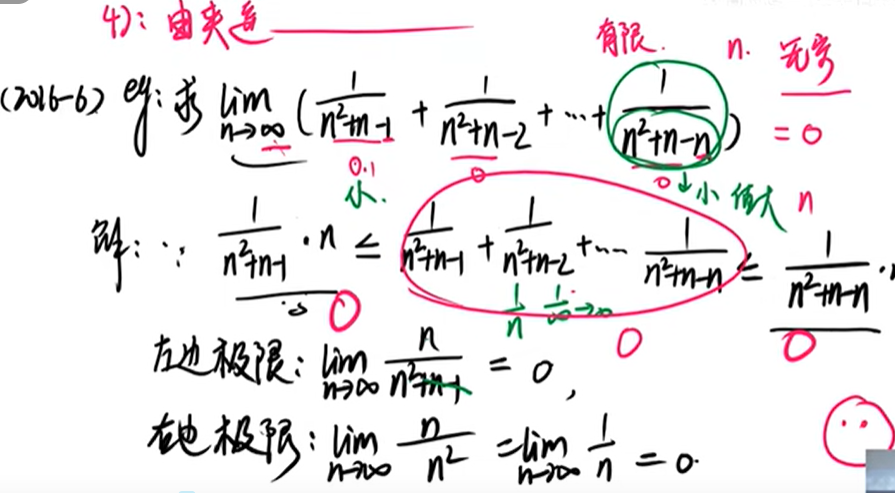 4): 由夹逼
有限. n. 无穷
(2016-6) eg: 求 lim n→∞ ( 1/(n²+n-1) + 1/(n²+n-2) + ... + 1/(n²+n-n) ) = 0
0.1 0 0
小. ↓小 值大 n
解: ∵ 1/(n²+n-1) · n ≤ 1/(n²+n-1) + 1/(n²+n-2) + ... 1/(n²+n-n) ≤ 1/(n²+n-n) ·
0 1/n 1/∞→ 0 0
左边极限: lim n→∞ n/(n²+n-1) = 0,
右边极限: lim n→∞ n/n² = lim n→∞ 1/n = 0.